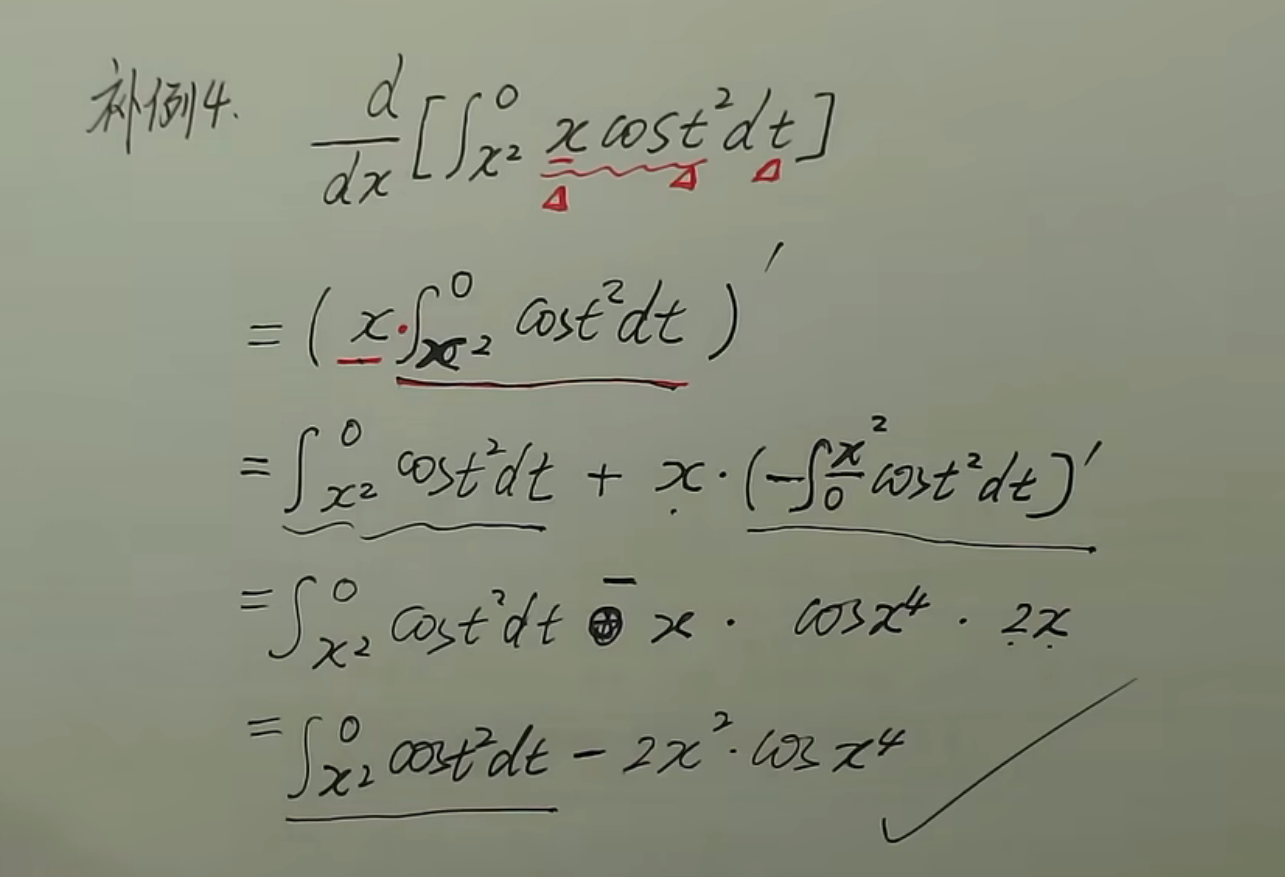 补例4. d/dx [∫_{x²}^{0} x cost² dt]
= ( x·∫_{x²}^{0} cost² dt )′
= ∫_{x²}^{0} cost² dt + x·(-∫_{0}^{x²} cost² dt)′
= ∫_{x²}^{0} cost² dt - x · cosx⁴ · 2x
= ∫_{x²}^{0} cost² dt - 2x²·cos x⁴